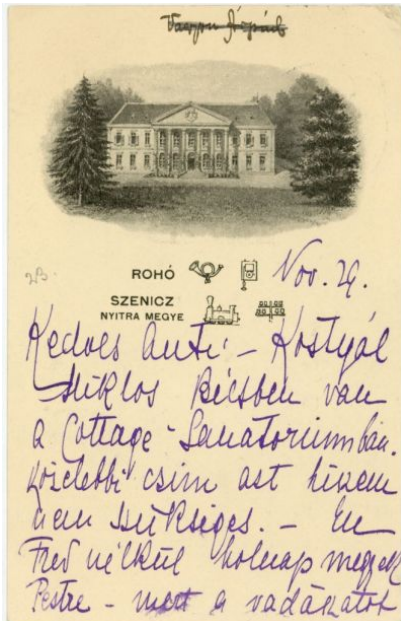 ROHÓ
Nov. 29.
SZENICZ
NYITRA MEGYE
Kedves Anti - Kostyál
Miklos Bécsben van
a Cottage-Sanatoriumban.
közelebbi czim azt hiszem
nem szükséges. - En
Fred nélkül holnap megyek
Pestre - mert a vadászatok